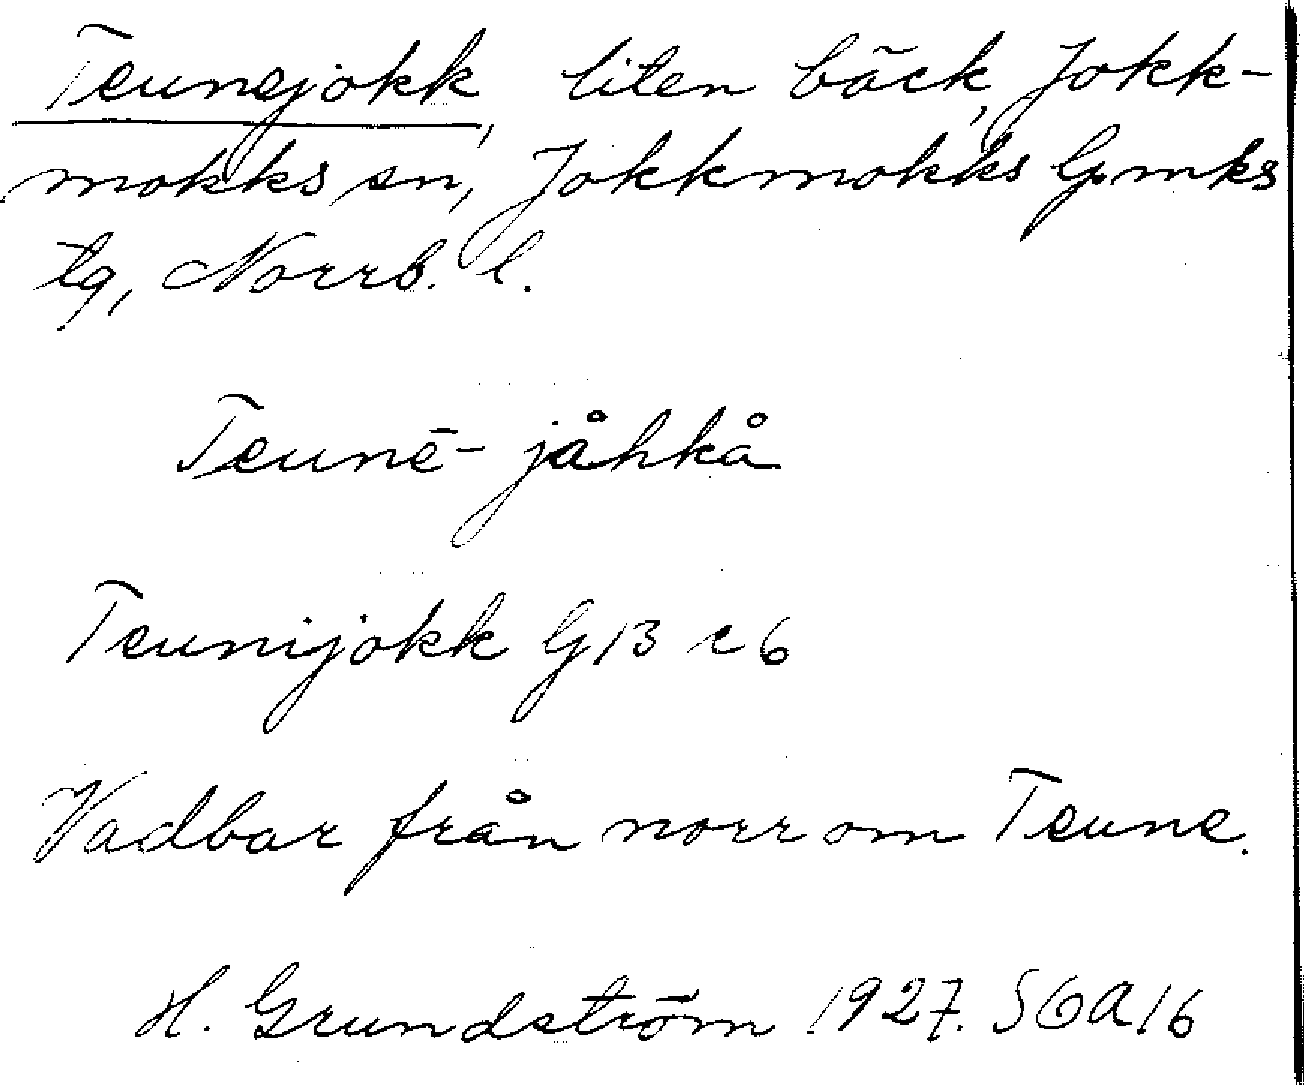 Teunejokk, liten bäck, Jokk-
mokks sn, Jokkmokks lpmks
tg, Norrb. l.
Teunē-jåhkå
Teunijokk G13 c6
Vadbar från norr om Teune.
H. Grundström 1927. SGA16